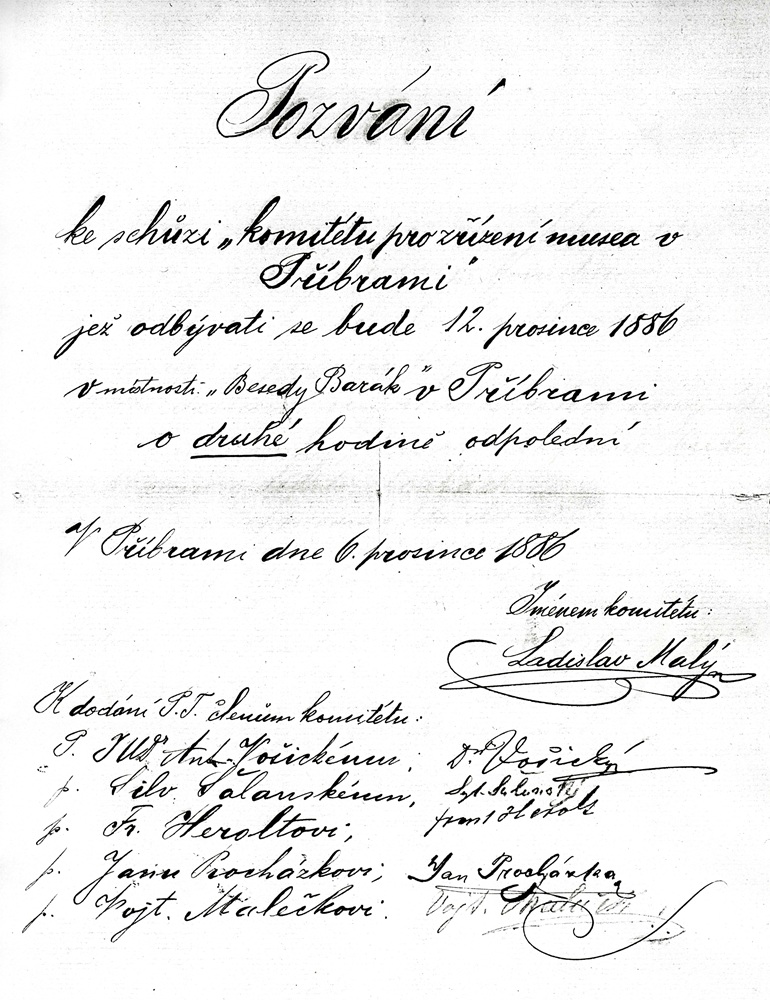 Pozvání
ke schůzi „komitétu pro zřízení musea v
Příbrami"
jež odbývati se bude 12. prosince 1886
v místnosti „Besedy Barák" v Příbrami
o druhé hodině odpolední
V Příbrami dne 6. prosince 1886
Jménem komitétu:
Ladislav Malý
K dodání P.T. členům komitétu:
P. JUDr Ant. Vošickému; Dr. Vošický
p. Silv. Šalanskému,
p. Fr. Heroltovi; Herolt
p. Janu Procházkovi; Jan Procházka
p. Vojt. Malečkovi. Vojt.